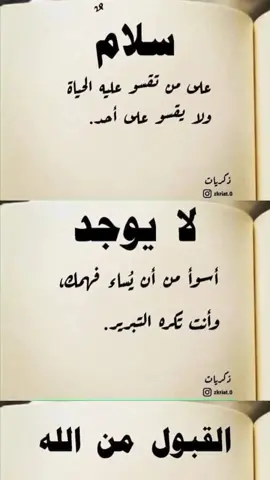 سلامٌ
على من تقسو عليه الحياة
ولا يقسو على أحد.
ذكريات
zkriat.0
لا يوجد
أسوأ من أن يُساء فهمك،
وأنت تكره التبرير.
ذكريات
zkriat.0
القبول من الله